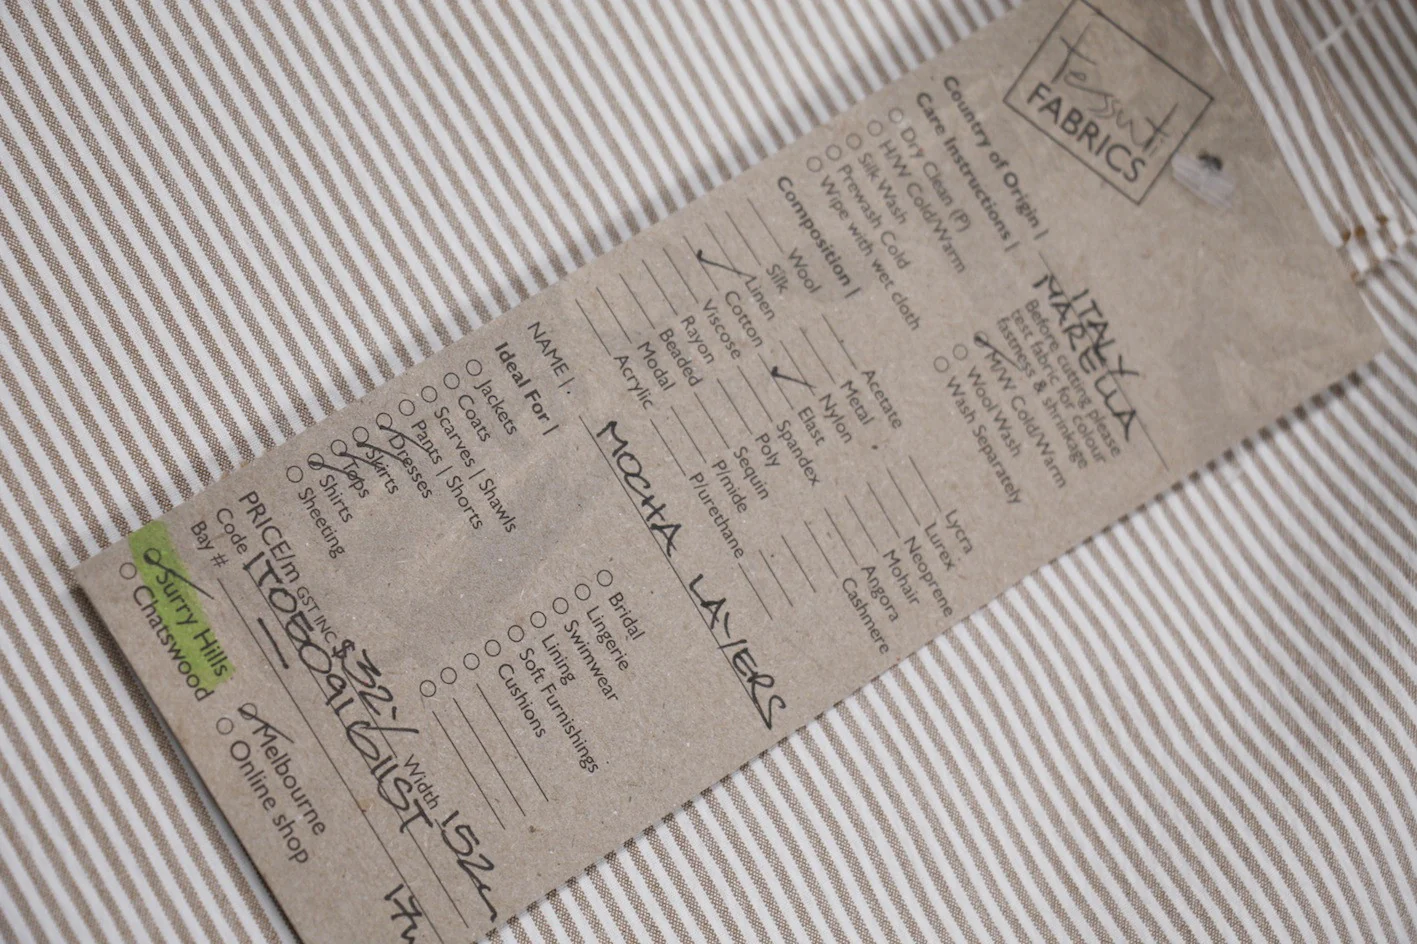 Tessuti
FABRICS
Country of Origin | ITALY
MARELLA
Care Instructions |
Before cutting please
test fabric for colour
fastness & shrinkage
Dry Clean (P)
H/W Cold/Warm
Silk Wash
Prewash Cold
Wipe with wet cloth
M/W Cold/Warm
Wool Wash
Wash Separately
Composition |
Wool
Silk
Linen
Cotton
Viscose
Rayon
Beaded
Modal
Acrylic
Acetate
Metal
Nylon
Elast
Spandex
Poly
Sequin
P/mide
P/urethane
Lycra
Lurex
Neoprene
Mohair
Angora
Cashmere
NAME | MOCHA LAYERS
Ideal For |
Jackets
Coats
Scarves | Shawls
Pants | Shorts
Dresses
Skirts
Tops
Shirts
Sheeting
Bridal
Lingerie
Swimwear
Lining
Soft Furnishings
Cushions
PRICE/m GST INC $32 Width 152
Code
Bay #
Surry Hills
Chatswood
Melbourne
Online shop